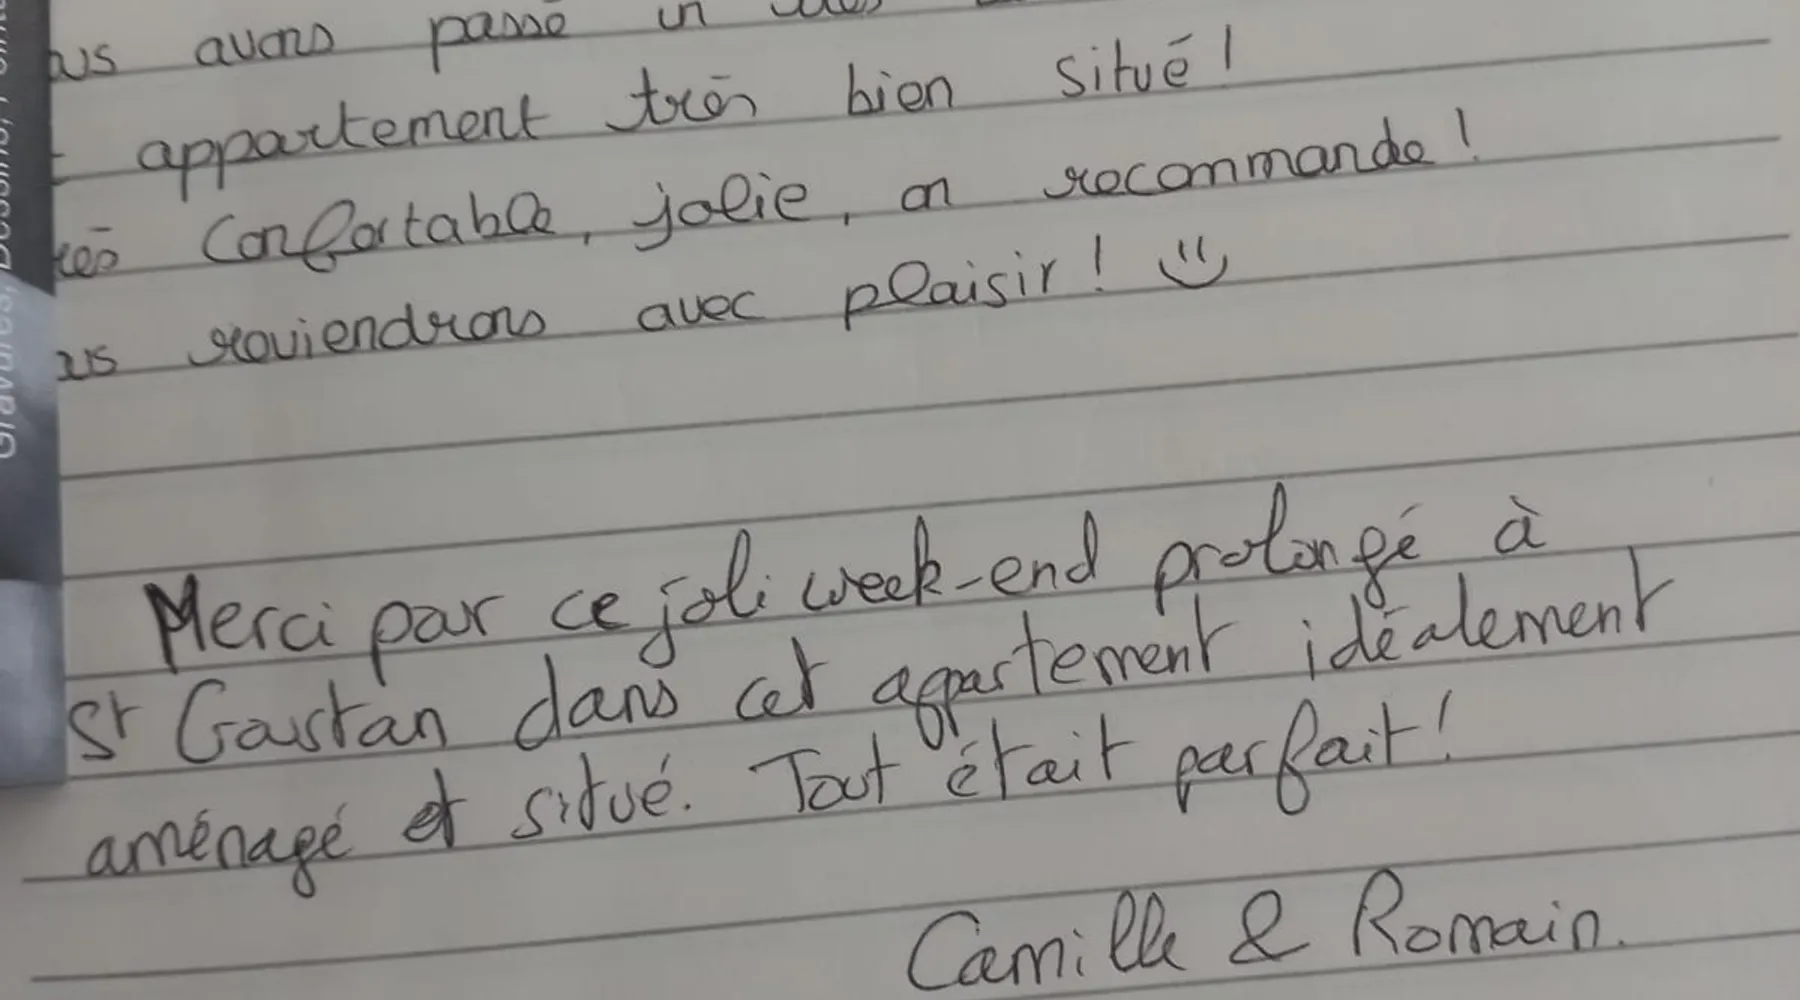 us avons passé un
appartement très bien situé !
rès Confortable, jolie, on recommande !
us reviendrons avec plaisir ! :)
Merci par ce joli week-end prolongé à
St Goustan dans cet appartement idéalement
aménagé et situé. Tout était parfait !
Camille & Romain.
Gravures, Dessins,